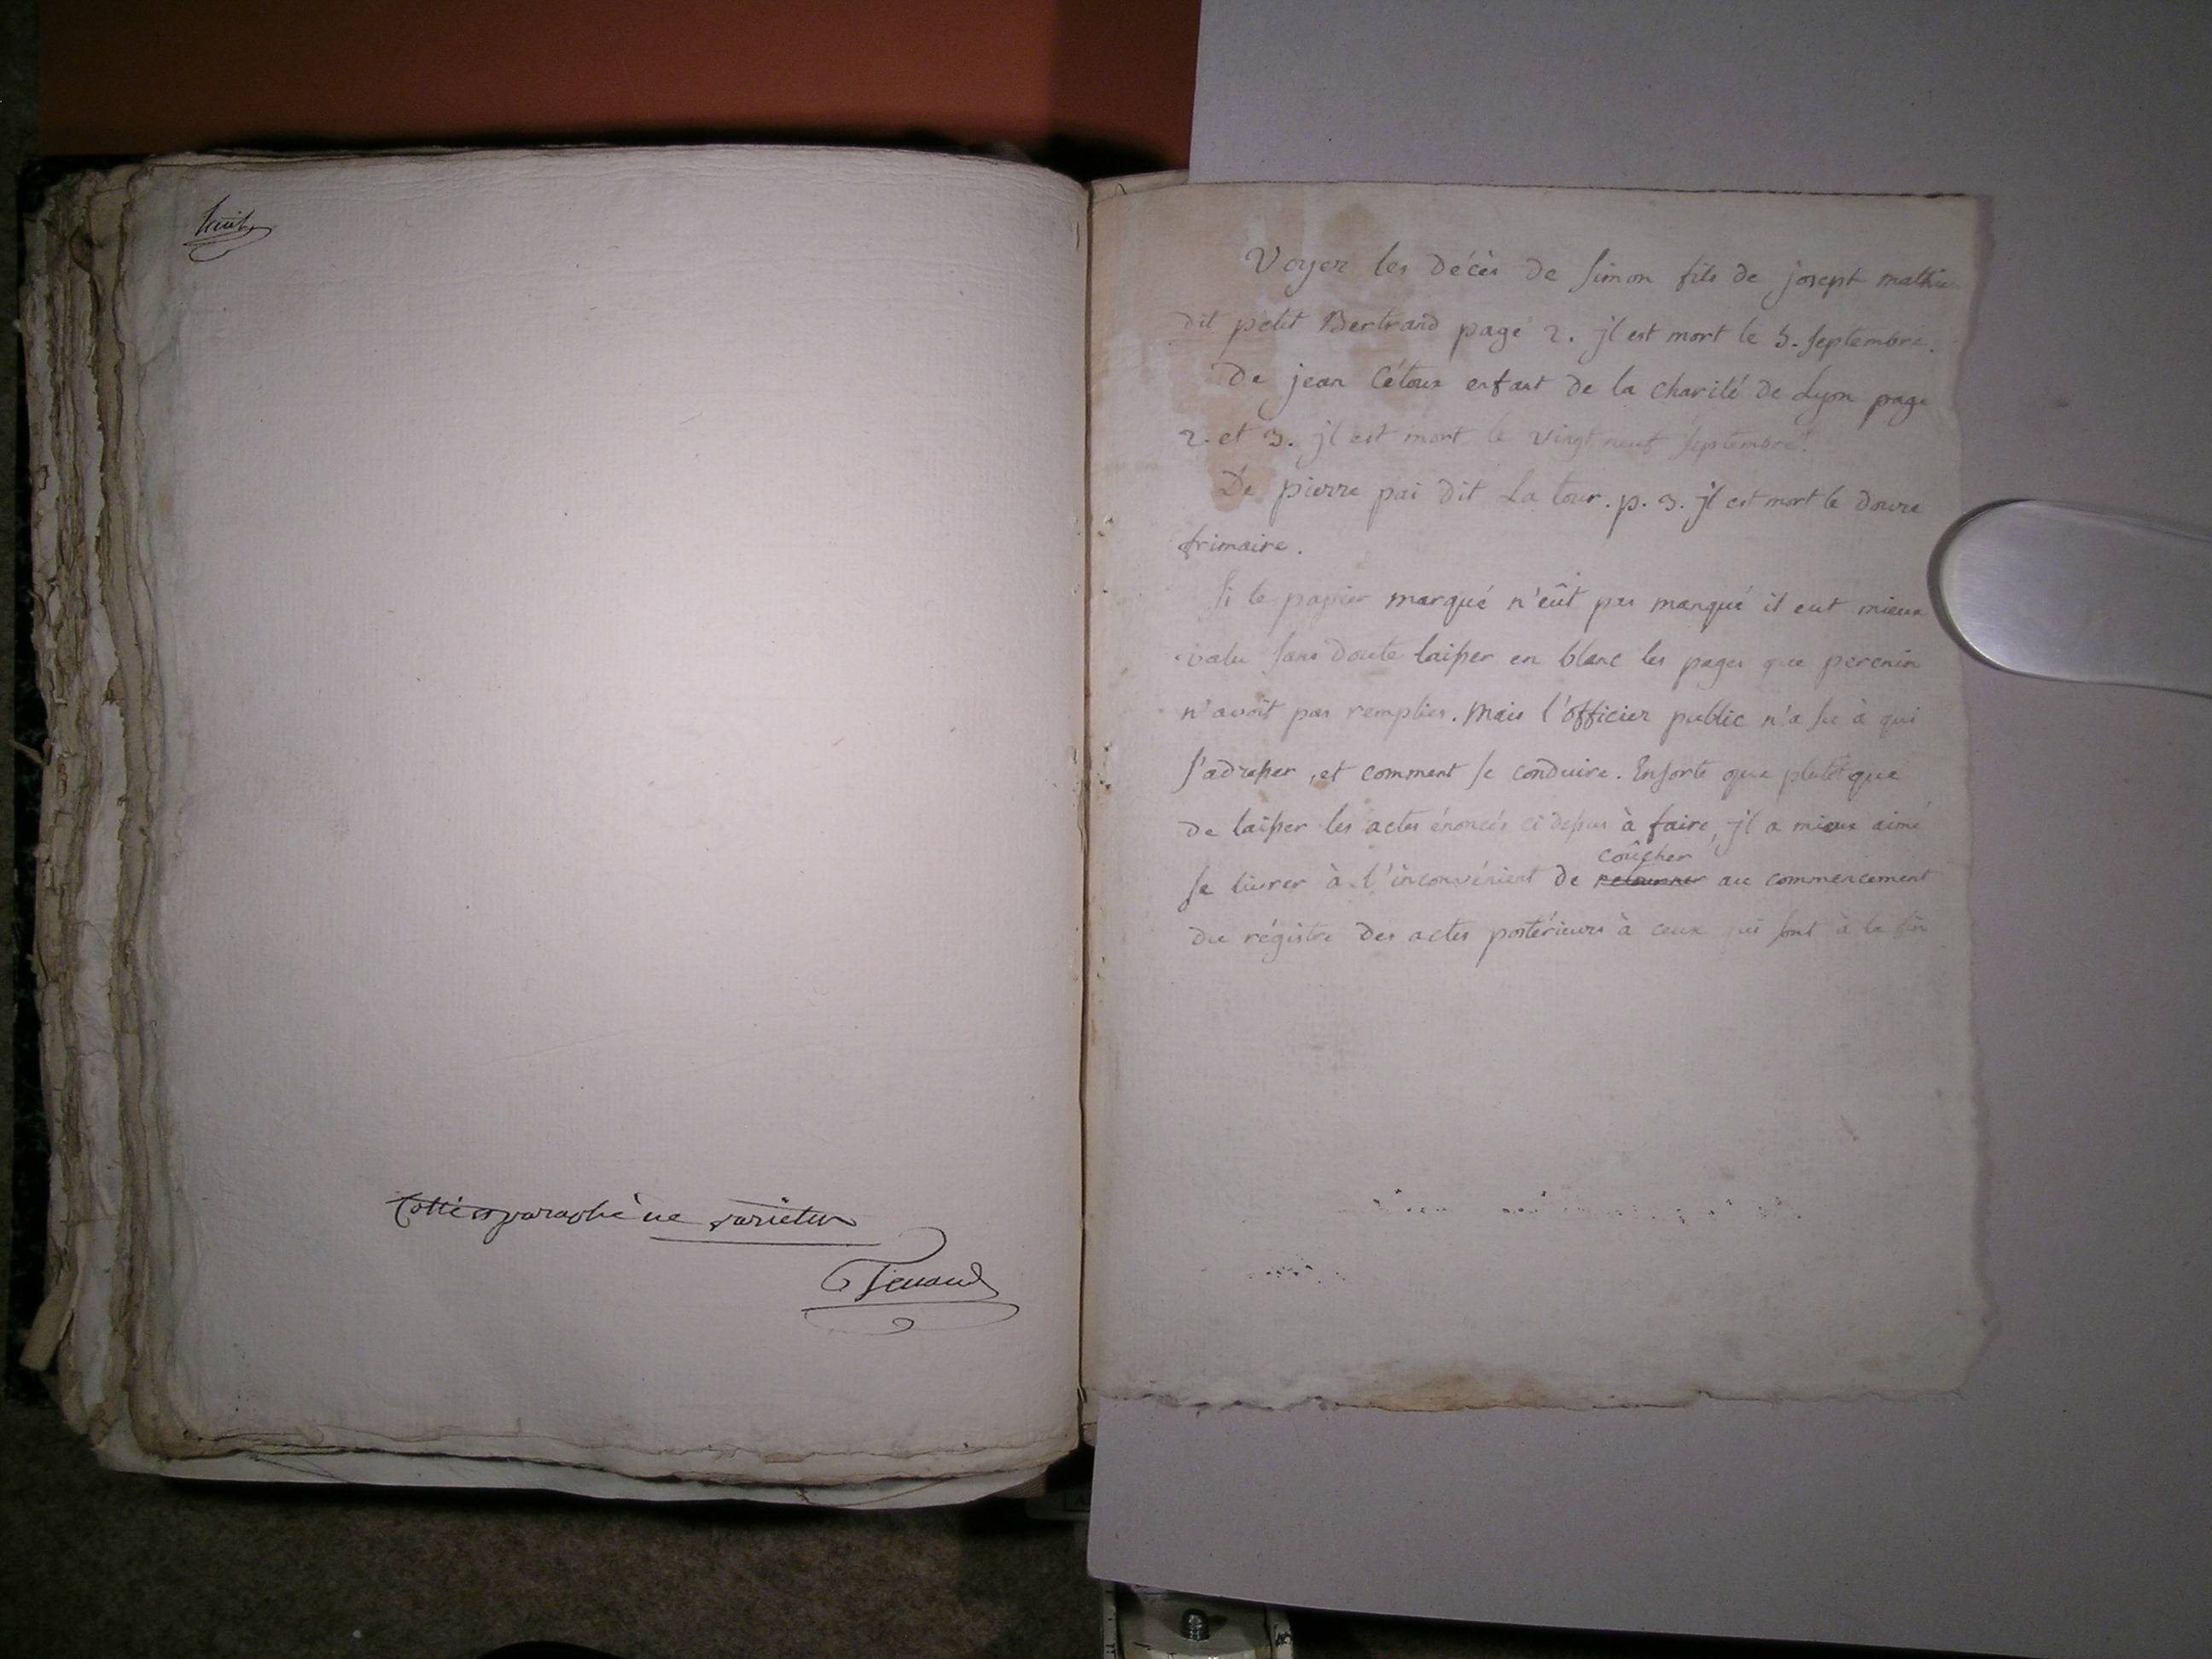 huit
Cotté et paraphé ne varietur
Voyez les décès de Simon fils de josept mathieu
dit petit Bertrand page 2. jl est mort le 5. septembre.
De jean Cétoux enfant de la charité de Lyon page
2. et 3. jl est mort le vingt neuf septembre.
De pierre pai dit La tour. p. 3. jl est mort le douze
frimaire.
Si le papier marqué n'eût pas manqué il eut mieux
valu sans doute laisser en blanc les pages que perenin
n'avoit pas remplies. Mais l'officier public n'a su à qui
s'adresser, et comment se conduire. Ensorte que plutôt que
de laisser les actes énoncés ci dessus à faire, jl a mieux aimé
se livrer à l'inconvénient de retourner coûcher au commencement
du régistre des actes postérieurs à ceux qui sont à la fin